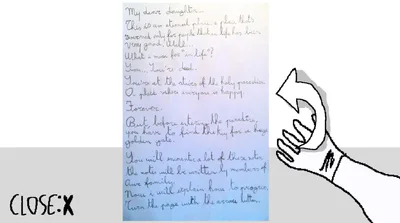 My dear daughter...
This is an eternal place, a place that's
reserved only for people that in life has been
very good. What...
What i mean for "in life"?
You... You're dead.
You're at the stairs of the holy paradise.
A place where everyone is happy.
Forever.
But, before entering the paradise,
you have to find the key for a huge
golden gate.
You will
a lot of these notes
the notes will be written by members of
our family.
Now i will explain how to progress.
Turn the page with the arrow button.
CLOSE:X